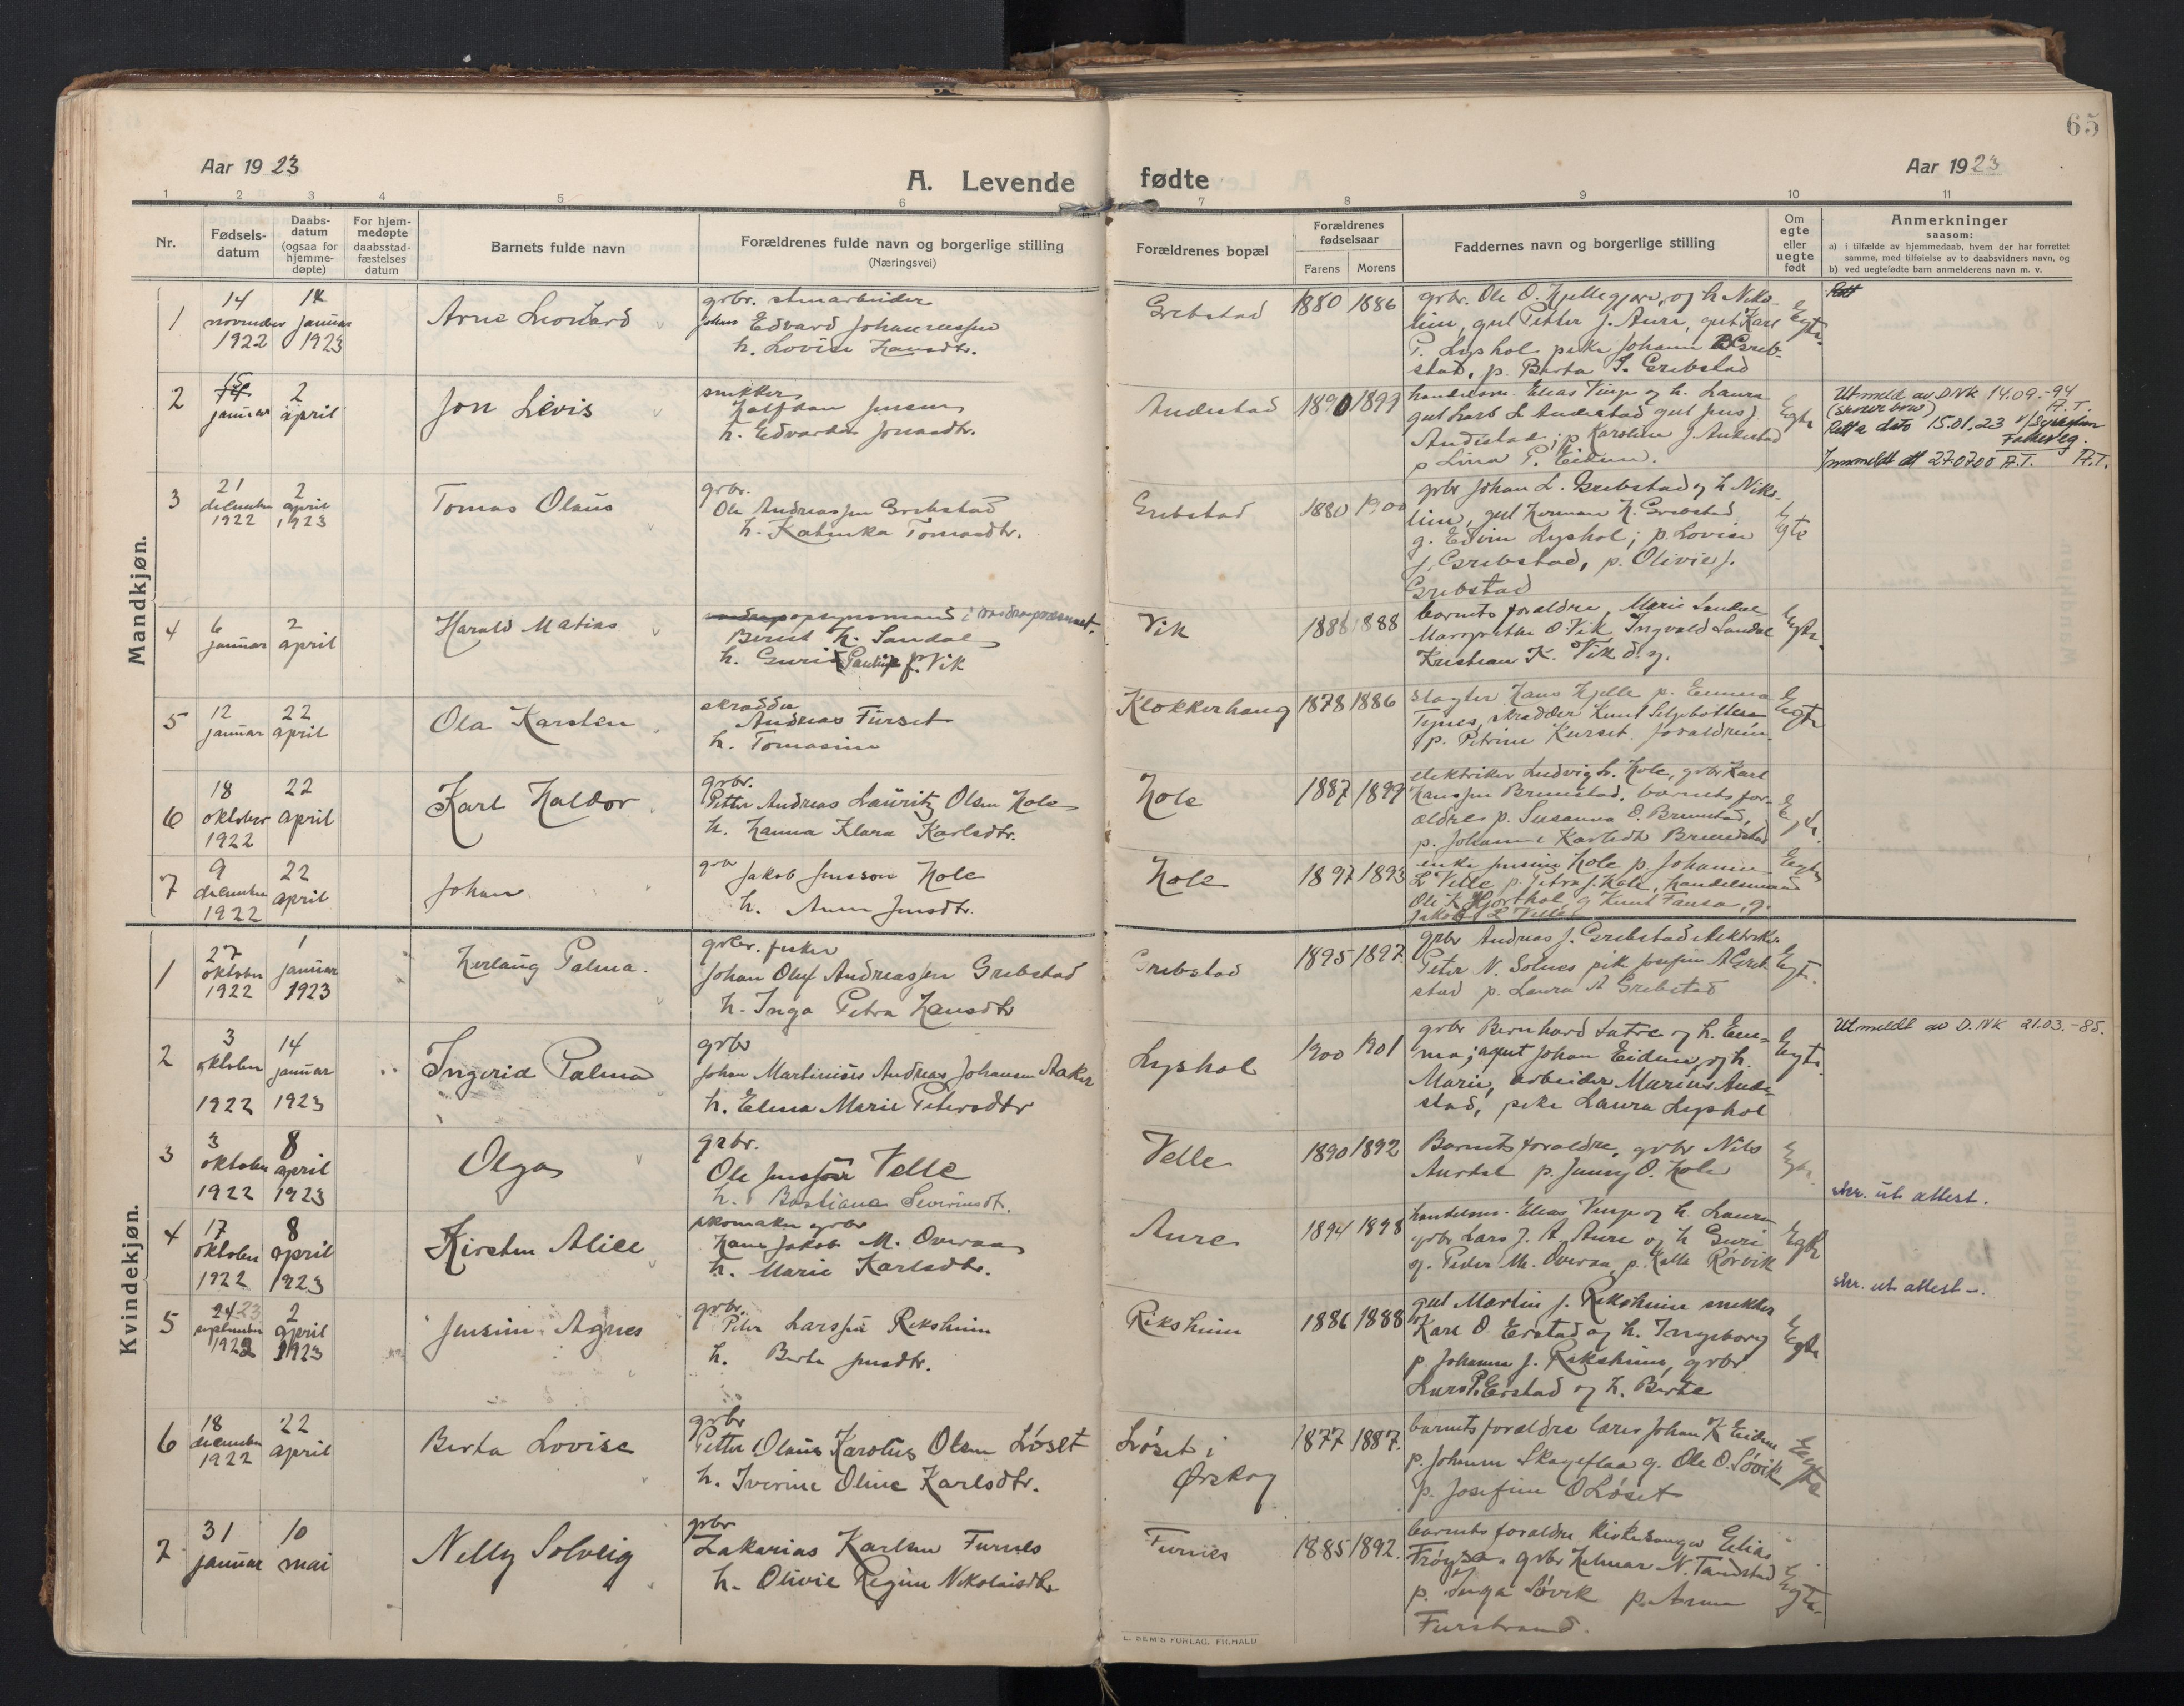 65
Aar 1923
A. Levende fødte
Aar 1923
1 2 3 4 5 6 7 8 9 10 11
Nr.
Fødsels-
datum
Daabs-
datum
(ogsaa for
hjemme-
døpte)
For hjem-
medøpte
daabsstad-
fæstelses
datum
Barnets fulde navn
Forældrenes fulde navn og borgerlige stilling
(Næringsvei)
Forældrenes bopæl
Forældrenes
fødselsaar
Farens Morens
Faddernes navn og borgerlige stilling
Om
egte
eller
uegte
født
Anmerkninger
saasom:
a) i tilfælde av hjemmedaab, hvem der har forrettet
samme, med tilføielse av to daabsvidners navn, og
b) ved uegtefødte barn anmelderens navn m. v.
Mandkjøn.
1
14 november 1922
14 januar 1923
Arne Leonhard
grbr. stenarbeider
Johans Edvard Johannessen
h. Lovise Hansdtr.
Grebstad
1880 1886
grbr. Ole O. Hjellegjære, og h Niko-
line, gut Petter J. Aure, gut Karl
P. Lyshol, pike Johanne Greb-
stad, p. Berta J. Grebstad
Egte.
2
15 januar
2 april
Jon Levis
snekker
Halfdan Jensen
h. Edvarda Jonasdtr.
Andestad
1890 1899
handelsm. Elias Vinje og h. Laura
gut Lars L Andestad gut Jens J.
Andestad; p Karoline J. Andestad
p Lina P. Eidem.
Egte
Utmeld av DNK 14.09.-94
A.T.
Retta dato 15.01.23
Innmeldt att 270700 A.T.
A.T.
3
21 december 1922
2 april 1923
Tomas Olaus
grbr.
Ole Andreassen Grebstad
h. Katinka Tomasdtr.
Grebstad
1880 1900
grbr Johan L. Grebstad og h Niko-
line, gut Herman H. Grebstad
g. Edvin Lyshol; p. Lovise
J. Grebstad, p. Olivie J.
Grebstad
Egte
4
6 januar
2 april
Harald Matias
opsynsmand i vasdragsvæsenet.
Bernt H. Sandal
h. Guri Pauline f. Vik
Vik
1886 1888
barnets foreldre, Marie Sandal
Margrethe O. Vik, Ingvald Sandal
Kristian K. Vik d. y.
Egte.
5
12 januar
22 april
Ola Karsten
skrædder
Andreas Furset
h. Tomasine
Klokkerhaug
1878 1886
slagter Hans Hjelle p. Emma
Tynes, skrædder Knut Seljebotten
p. Petrine Furset. foreldrene.
Egte
6
18 oktober 1922
22 april
Karl Haldor
grbr.
Petter Andreas Lauritz Olsen Hole
h. Hanna Klara Karlsdtr.
Hole
1887 1899
elektriker Ludvig L. Hole, grbr Karl
Hanssen Brunstad, barnets for-
ældre p. Susanna O. Brunstad,
p. Johanne Karlsdtr Brunstad
Egte.
7
9 december 1922
22 april
Johan
grbr Jakob Jensson Hole
h. Anne Jensdtr.
Hole
1897 1893
enke Jensine Hole p. Johanne
L Velle p. Petra J. Hole, handelsmand
Ole K Hjorthol, g Knut Fauske, g.
Jakob L Velle
Egte
Kvindekjøn.
1
27 oktober 1922
1 januar 1923
Herlaug Palma.
grbr. fisker
Johan Oluf Andreassen Grebstad
h. Inga Petra Hansdtr
Grebstad
1895 1897.
grbr Andreas J. Grebstad elektriker
Peter N. Solnes pike Josefine A Greb-
stad p. Laura A Grebstad
Egte.
2
3 oktober 1922
14 januar 1923
Ingerid Palma
grbr
Johan Martinius Andreas Johansen Aaker
h. Elma Marie Petersdtr
Lyshol
1900 1901
grbr Bernhard Sætre og h. Em-
ma; agent Johan Eidem, og h.
Marie, arbeider Marius Ande-
stad, pike Laura Lyshol
Egte.
Utmeldt av D.NK 21.03.-85.
3
3 oktober 1922
8 april 1923
Olga
grbr.
Ole Jensson Velle
h. Bastiana Severinsdt.
Velle
1890 1892
Barnets foreldre, grbr Nils
Aurdal p. Jenny O. Hole
Egte
skr. ut attest.
4
17 oktober 1922
8 april 1923
Kirsten Alice
skomaker grbr
Hans Jakob M. Overaa
h. Marie Karlsdtr.
Aure
1894 1898
handelsm. Elias Vinje og h. Laura
grbr Lars J. A. Aure og h Guri
g. Peder M. Overaa, p. Kalla Rørvik
Egte
skr. ut attest -.
5
24 23 september 1922
2 april 1923
Jensine Agnes
grbr.
Peter Larssen Riksheim
h. Berte Jensdtr.
Riksheim
1886 1888
gut Martin J. Riksheim snekker
Karl O. Erstad og h. Ingeborg
p. Johanne J. Riksheim, grbr.
Lars P. Erstad og h. Berte
Egte
6
18 december 1922
22 april
Berta Lovise
grbr
Petter Olaus Karolus Olsen Løset
h. Iverine Oline Karlsdtr.
Løset i
Ørskog
1877 1887.
barnets foreldre lærer Johan K Eidem
p. Johanne Skageflaa g. Ole O. Søvik
p. Josefine O Løset
Egte
7
31 januar
10 mai
Nelly Solveig
grbr
Zakarias Karlsen Furnes
h. Olivie Regine Nikolaisdtr
Furnes
1885 1892.
barnets foreldre kirkesanger Elias
Frøysa. grbr Helmar N. Tandstad
p. Inga Søvik p. Anna
Furstrand.
Egte.
E. SEM'S FORLAG, FR.HALD